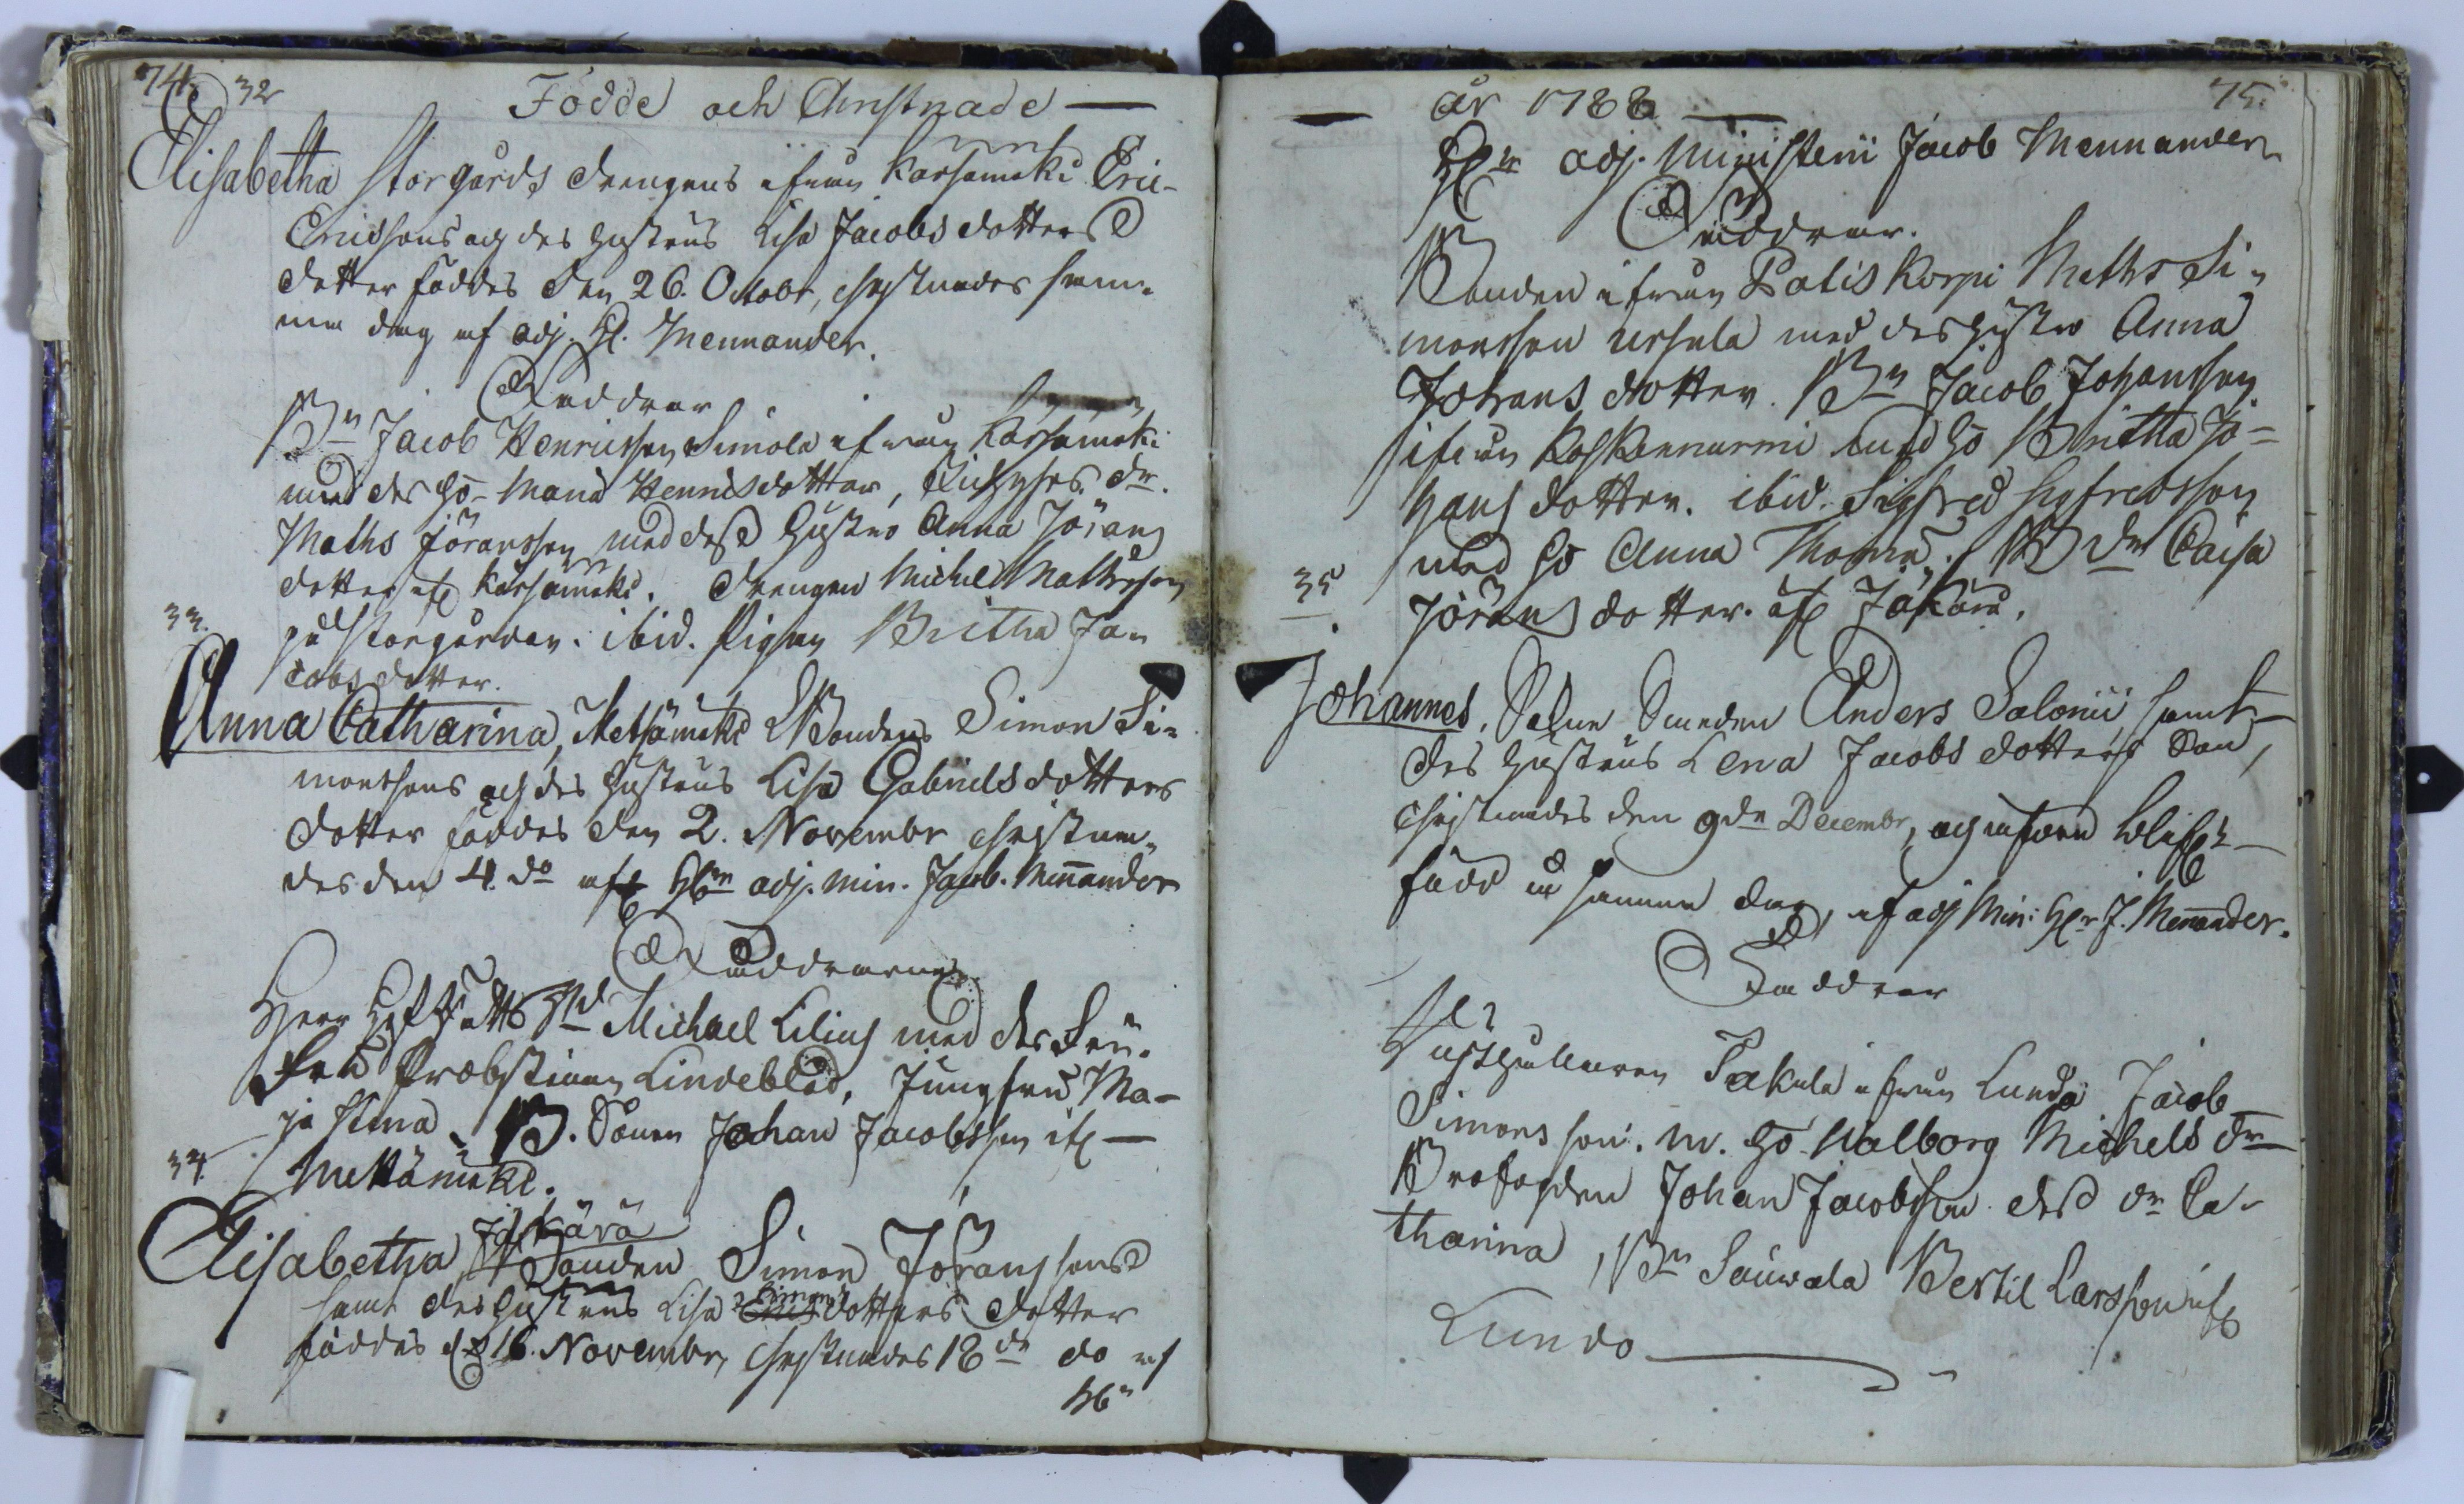 74. 32 Födde och Christnade —
Elisabetha Storgårds drengens ifrån Karsamäki Eric
Ericssons och des hustrus Lisa Jacobs dotters
dotter föddes den 26. Octobr, christnades sam-
ma dag af adj. H. Mennander.
Faddrar
Bn Jacob Henricsson Simola ifrån Karsamäki
med des ho- Maria Henricsdotter, dr.
Maths Jöransson med dess hustru Anna Jörans
dotter if Karsamäki. drengen Michel Mathsson
på Storgården. ibid. Pigan Britha Ja-
cobs dotter.
33.
Anna Catharina, Metsämäki Bondens Simon Si-
monssons och des hustrus Lisa Gabriels dotters
dotter föddes den 2. Novembr christna-
des den 4. do af Hrn adj. min. Jacob. Mennander
Faddrarne
Herr Michael Lilius med des Fru.
Fru Probstinnan Lindeblad, Jungfru Ma-
ja Stina. B. Sonen Johan Jacobsson if —
34. Mettämäki.
Jäkärä
Elisabetha, Bonden Simon Jöranssons
samt des hustrus Lisa Simons dotters dotter
föddes d 16. Novembr, christnades 18 dn do af
Hrn
— år 1788 — 75.
Hrn adj. Ministerii Jacob Mennander
Faddrar.
Bonden ifrån Patis Korpi Maths Si-
monsson Ursula med des hustru Anna
Johans dotter. Bn Jacob Johansson
ifrån Koskennurmi med ho Britha Jo-
hans dotter. ibid. Sigfred Sigfredsson
med ho Anna Thoma. B dr Caisa
35. Jörans dotter. if Jäkärä.
Johannes, Smeden Anders Salonii samt
des hustrus Lena Jacobs dotters Son,
christnades den 9dn Decembr, och
född samma dag, af adj Min: Hr J. Mennander.
Faddrar
Pakula ifrån Lundo Jacob
Simons son. m. ho. Walborg Michels dr
Brofogden Johan Jacobsson dess dr Ca-
tharina, Bn Sauwala Bertil Larsson if
Lundo —